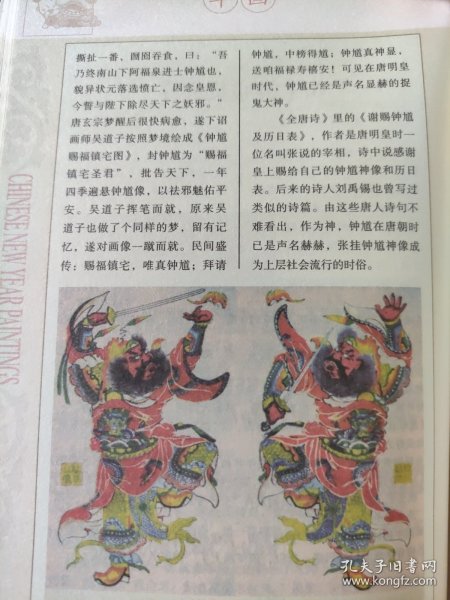 年画
撕扯一番，囫囵吞食，曰：“吾
乃终南山下阿福泉进士钟馗也，
貌异状元落选愤亡，因念皇恩，
今誓与陛下除尽天下之妖邪。”
唐玄宗梦醒后很快病愈，遂下诏
画师吴道子按照梦境绘成《钟馗
赐福镇宅图》，封钟馗为“赐福
镇宅圣君”，批告天下，一年
四季遍悬钟馗像，以祛邪魅佑平
安。吴道子挥笔而就，原来吴
道子也做了个同样的梦，留有记
忆，遂对画像一蹴而就。民间盛
传：赐福镇宅，唯真钟馗；拜请
钟馗，中榜得馗；钟馗真神显，
送咱福禄寿禧安！可见在唐明皇
时代，钟馗已经是声名显赫的捉
鬼大神。
《全唐诗》里的《谢赐钟馗
及历日表》，作者是唐明皇时一
位名叫张说的宰相，诗中说感谢
皇上赐给自己的钟馗神像和历日
表。后来的诗人刘禹锡也曾写过
类似的诗篇。由这些唐人诗句不
难看出，作为神，钟馗在唐朝时
已是声名赫赫，张挂钟馗神像成
为上层社会流行的时俗。
CHINESE NEW YEAR PAINTINGS
孔夫子旧书网
www.kongfz.com